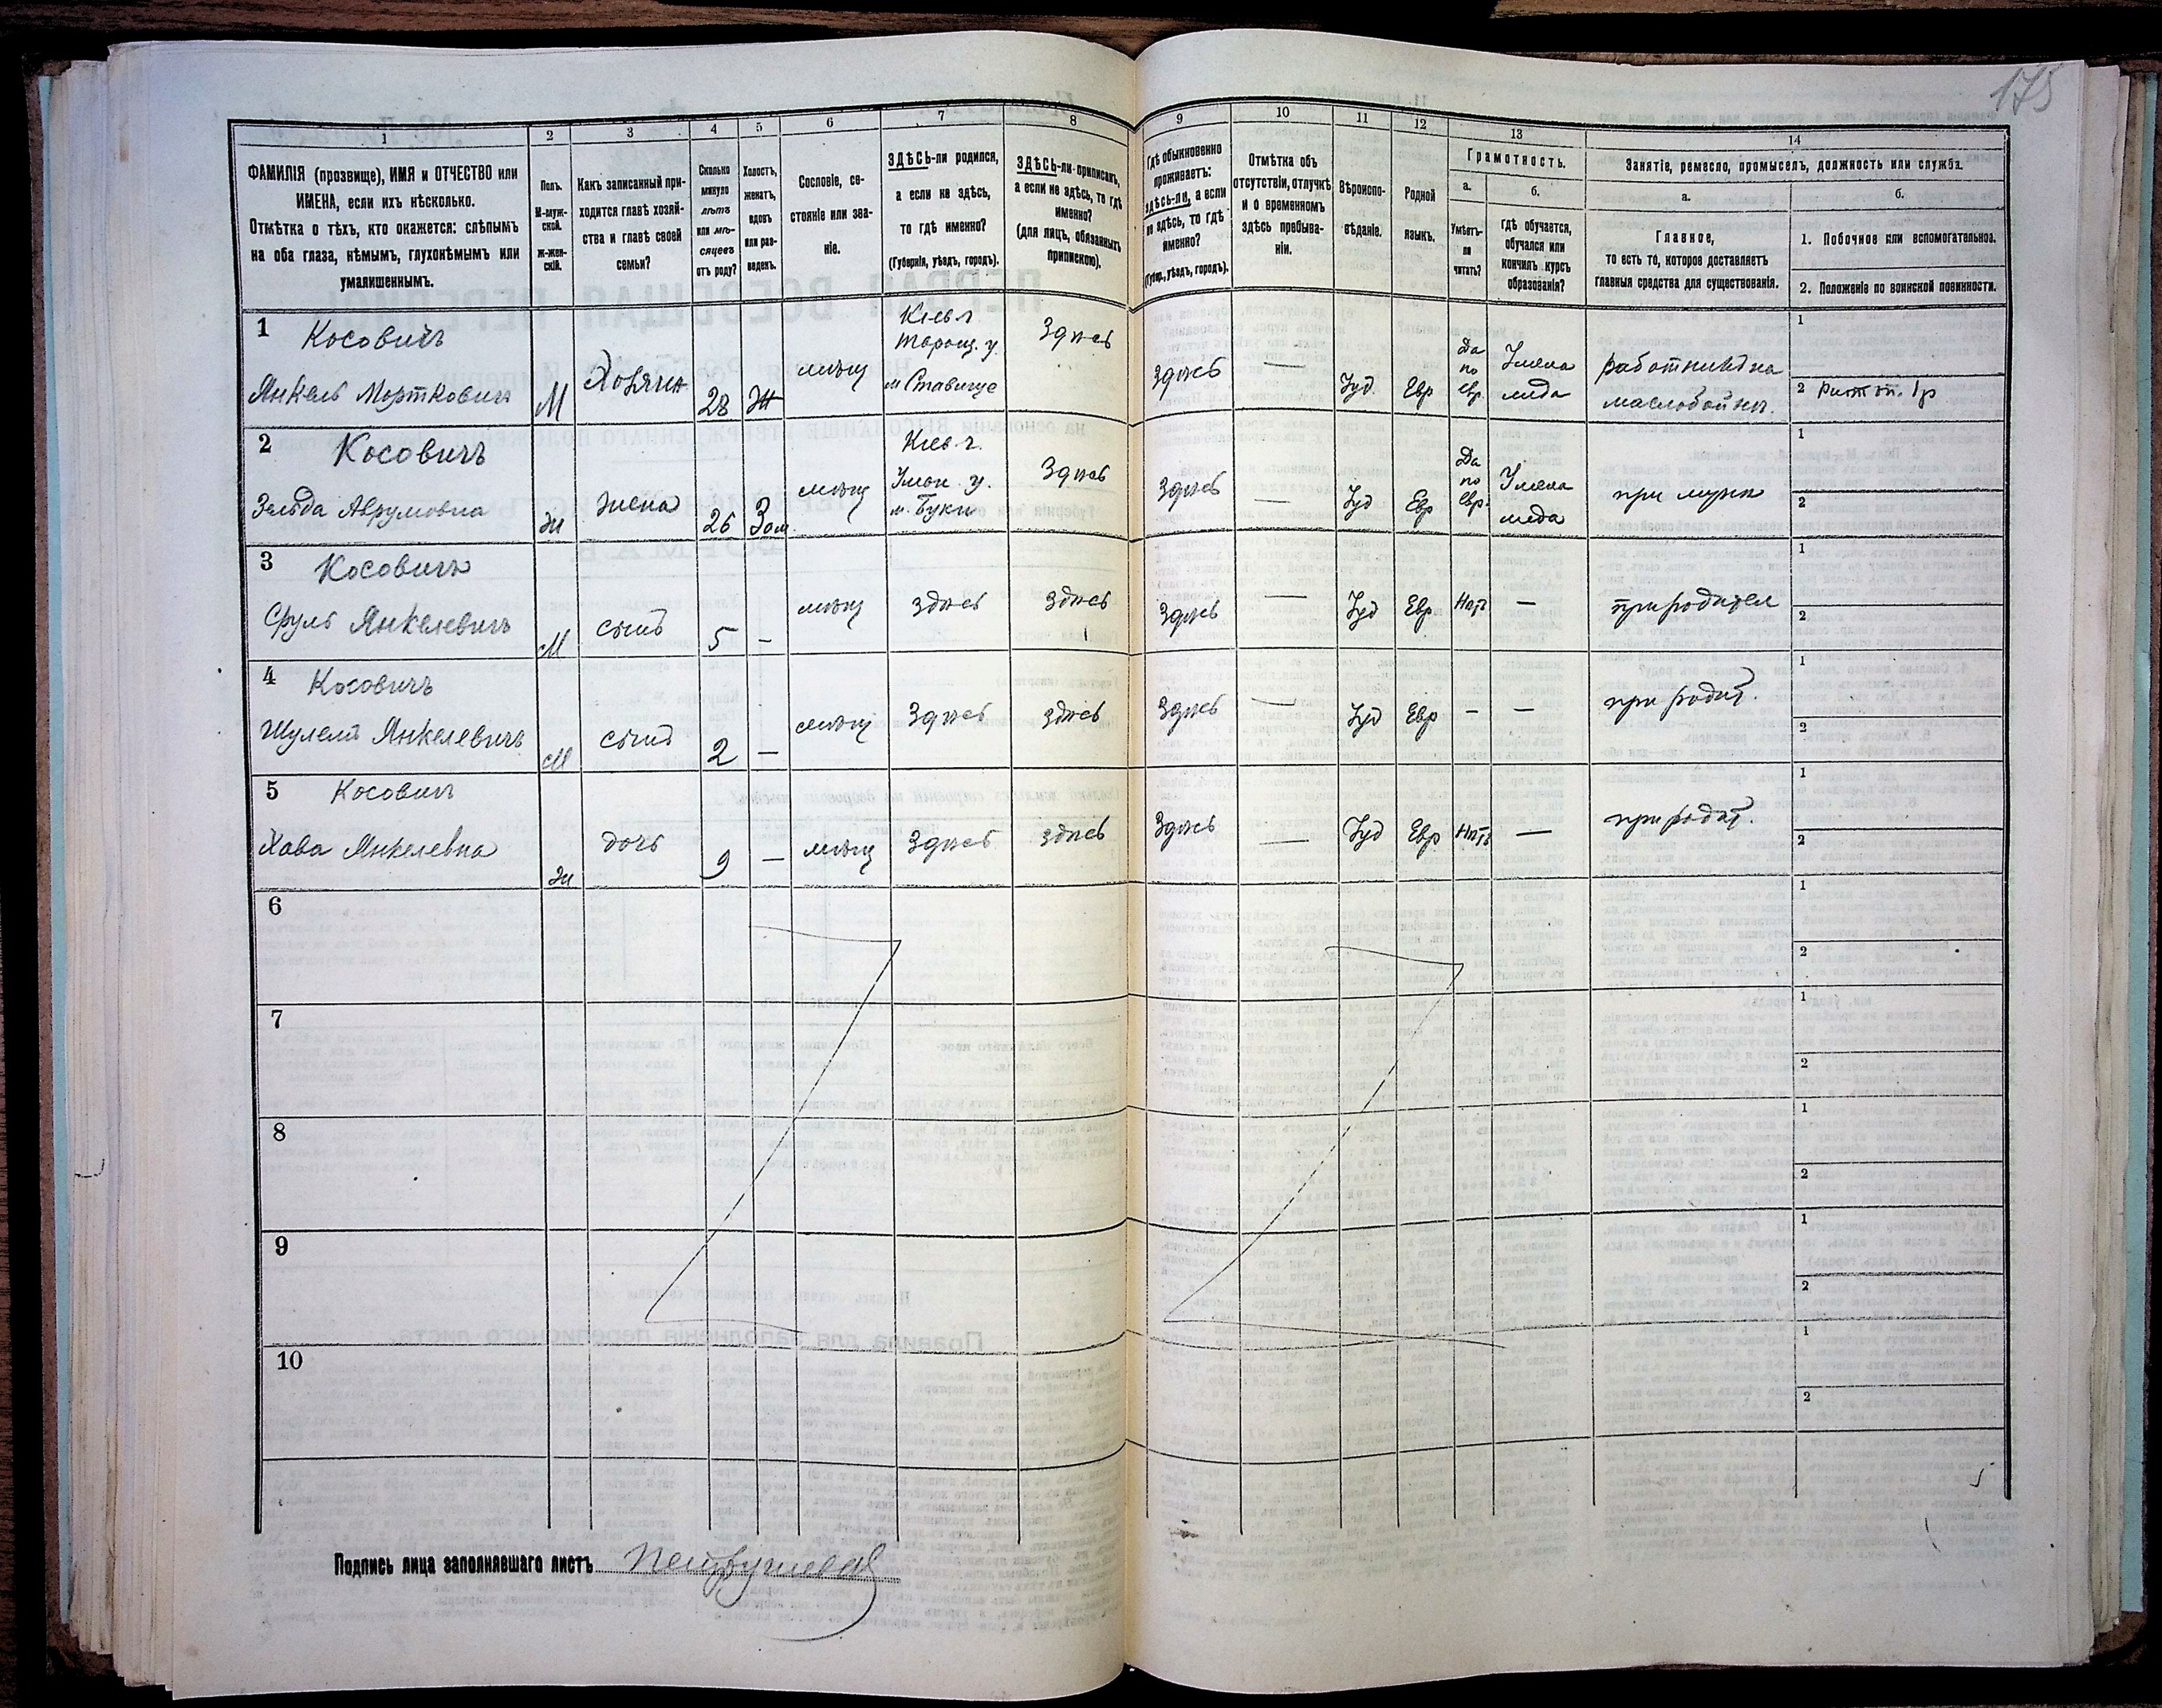 175
1
2
3
4
5
6
7
8
9
10
11
12
13
14
ФАМИЛІЯ (прозвище), ИМЯ и ОТЧЕСТВО или
ИМЕНА, если ихъ нѣсколько.
Отмѣтка о тѣхъ, кто окажется: слѣпымъ
на оба глаза, нѣмымъ, глухонѣмымъ или
умалишеннымъ.
Полъ.
М-муж-
ской.
ж-жен-
скій.
Какъ записанный при-
ходится главѣ хозяй-
ства и главѣ своей
семьи?
Сколько
минуло
лѣтъ
или мѣ-
сяцевъ
отъ роду?
Холостъ,
женатъ,
вдовъ
или раз-
веденъ.
Сословіе, со-
стояніе или зва-
ніе.
ЗДѢСЬ-ли родился,
а если не здѣсь,
то гдѣ именно?
(Губернія, уѣздъ, городъ).
ЗДѢСЬ-ли приписанъ,
а если не здѣсь, то гдѣ
именно?
(для лицъ, обязанныхъ
припискою).
Гдѣ обыкновенно
проживаетъ:
здѣсь-ли, а если
не здѣсь, то гдѣ
именно?
(Губер., уѣздъ, городъ).
Отмѣтка объ
отсутствіи, отлучкѣ
и о временномъ
здѣсь пребыва-
ніи.
Вѣроиспо-
вѣданіе.
Родной
языкъ.
Грамотность.
а.
Умѣетъ-
ли
читать?
б.
Гдѣ обучается,
обучался или
кончилъ курсъ
образованія?
Занятіе, ремесло, промыселъ, должность или служба.
а.
Главное,
то есть то, которое доставляетъ
главныя средства для существованія.
б.
1. Побочное или вспомогательное.
2. Положеніе по воинской повинности.
1 Косовичъ
Янкель Мортковичъ
М
Хозяинъ
28
Ж
мѣщ
Кіев г.
Таращ. у.
м Ставище
Здѣсь
Здѣсь
—
Іуд.
Евр
Да
по
евр.
У мела
меда
работникъ на
маслобойнѣ.
1
2 Ратн оп. 1 р
2 Косовичъ
Зельда Аврумовна
ж
жена
26
Зам.
мѣщ
Кіев г.
Уман. у.
м. Буки
Здѣсь
Здѣсь
—
Іуд
Евр
Да
по
евр.
У мела
меда
при мужѣ
1
2
3 Косовичъ
Сруль Янкелевичъ
М
сынъ
5
—
мѣщ
здѣсь
здѣсь
Здѣсь
—
Іуд
Евр.
Нѣтъ
—
при родител
1
2
4 Косовичъ
Шулем Янкелевичъ
М
сынъ
2
—
мѣщ
Здѣсь
здѣсь
Здѣсь
—
Іуд
Евр
—
—
при родит.
1
2
5 Косович
Хава Янкелевна
ж
дочь
9
—
мѣщ
Здѣсь
здѣсь
Здѣсь
—
Іуд
Евр
Нѣтъ
—
при родит.
1
2
6
1
2
7
1
2
8
1
2
9
1
2
10
1
2
Подпись лица заполнявшаго листъ